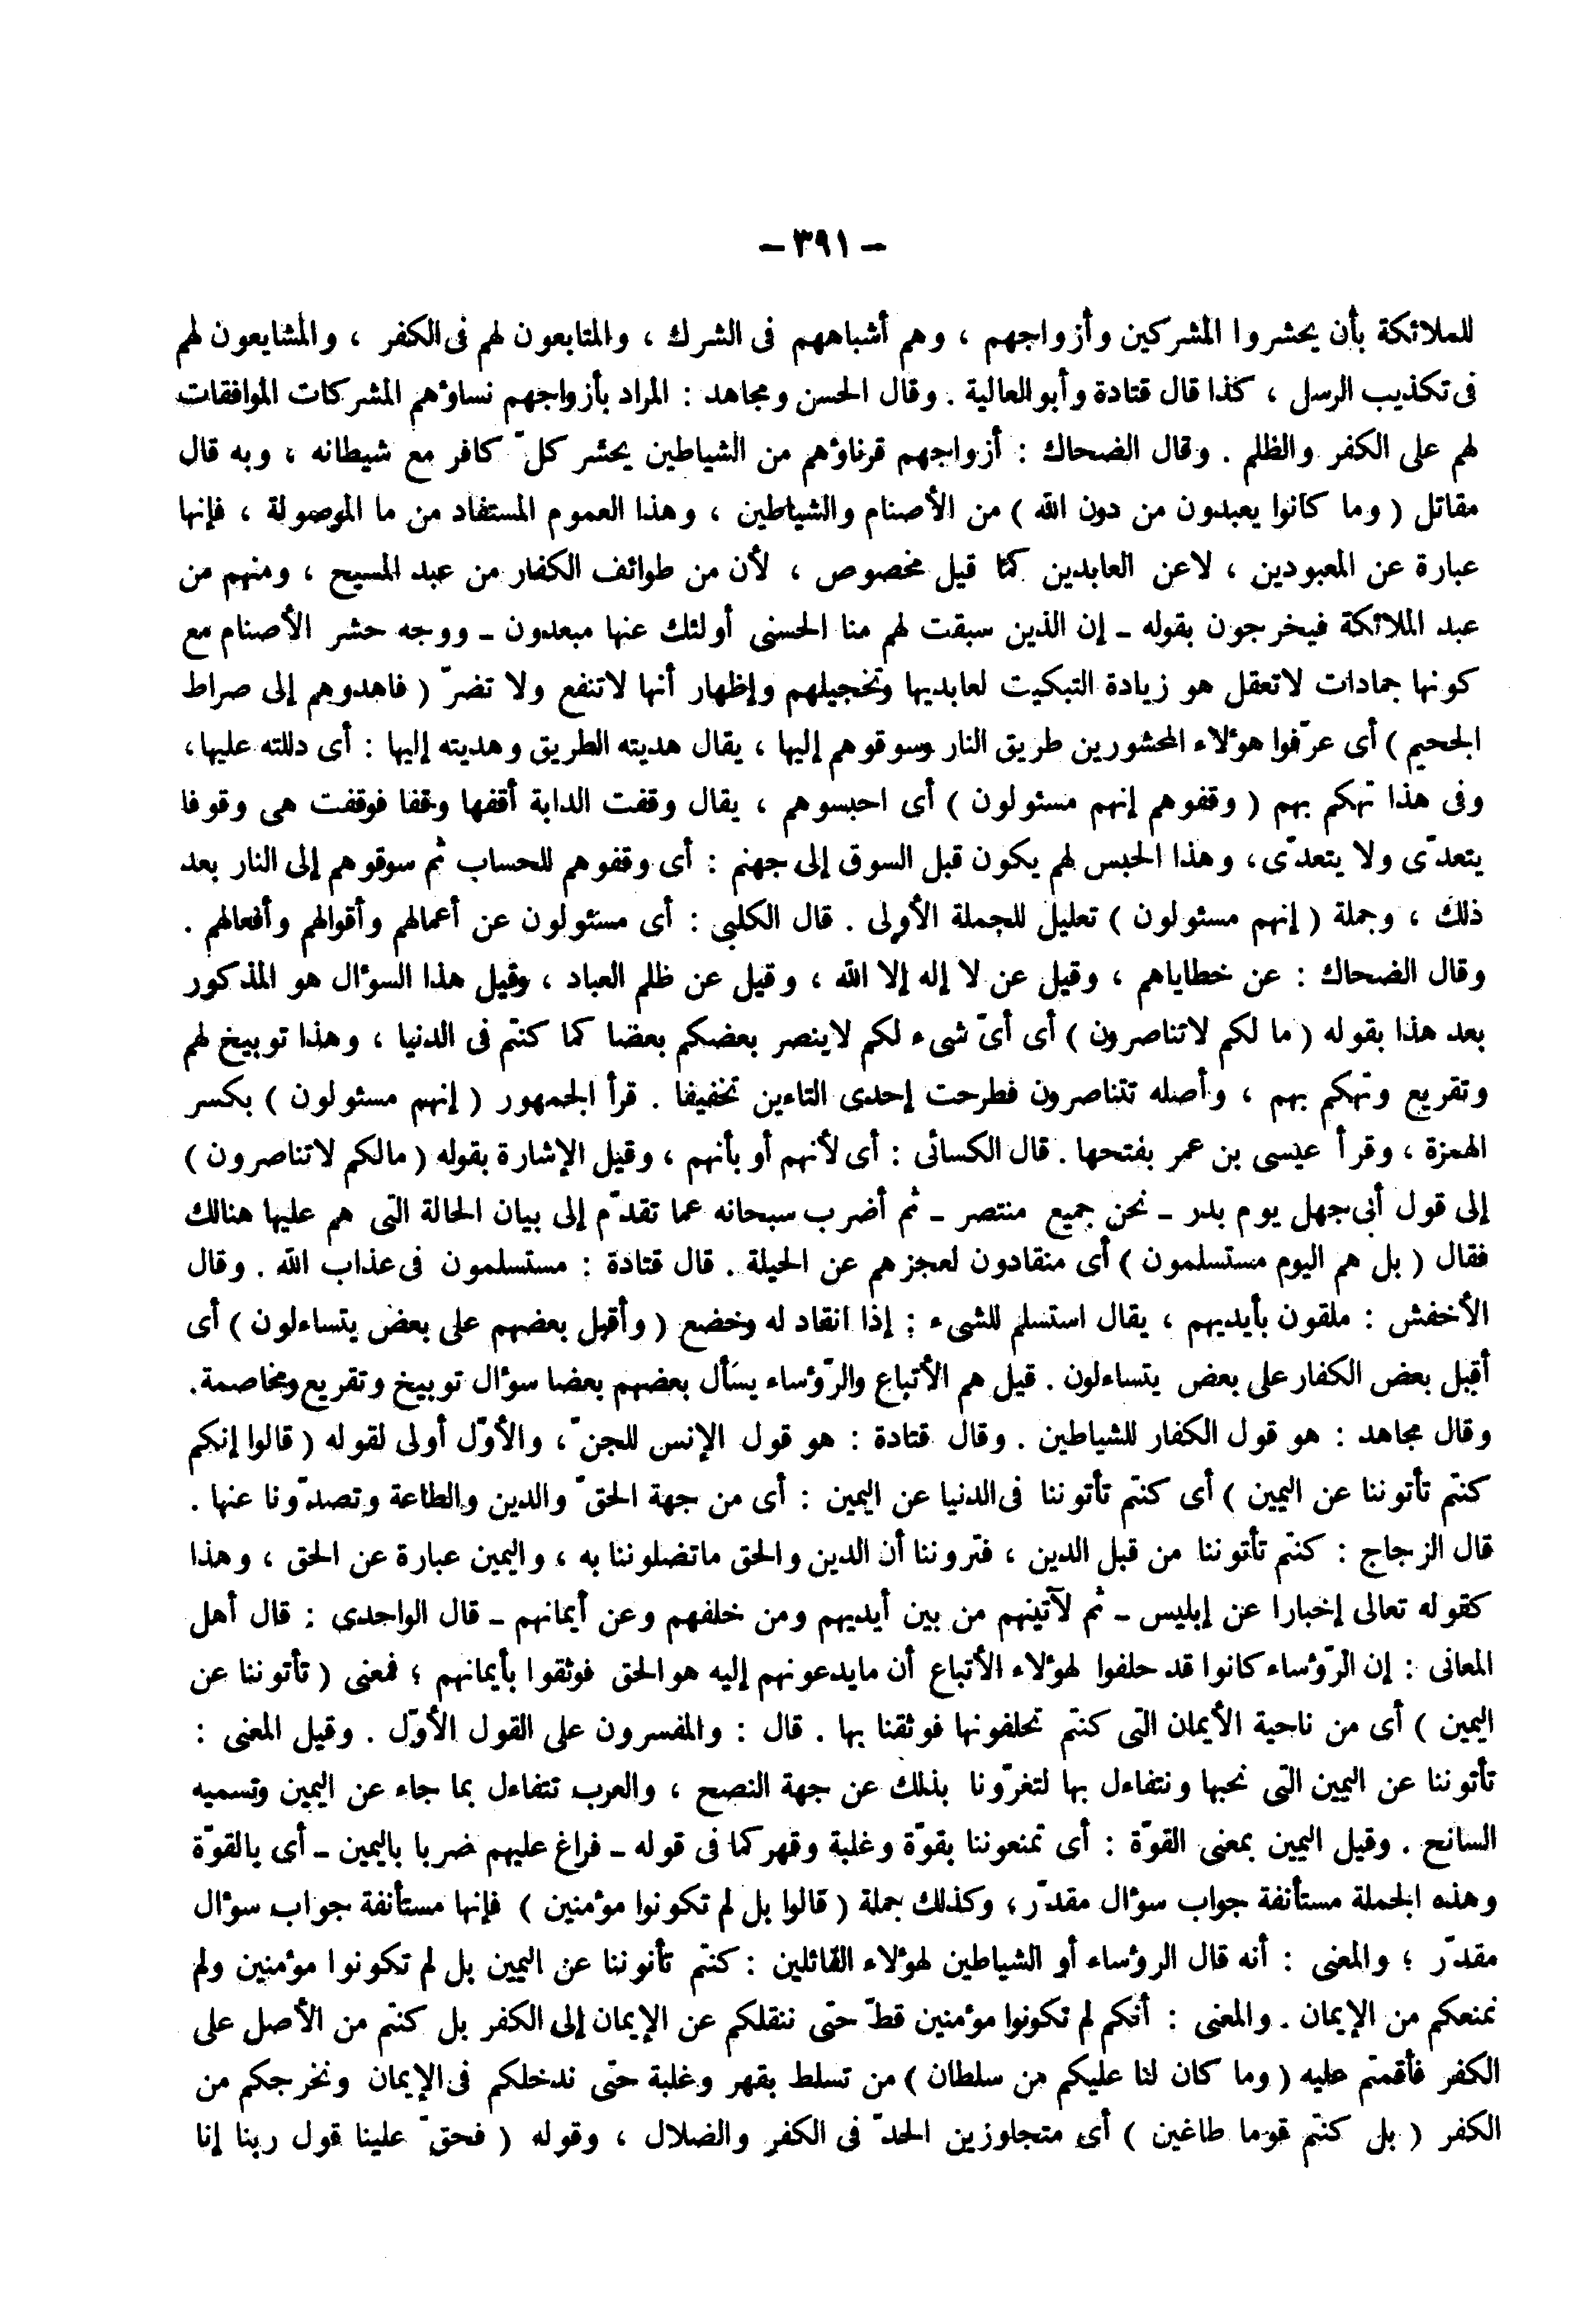 – ٣٩١ –
للملائكة بأن يحشروا المشركين وأزواجهم ، وهم أشباههم فى الشرك ، والمتابعون لهم فى الكفر ، والمشايعون لهم
فى تكذيب الرسل ، كذا قال قتادة وأبو العالية . وقال الحسن ومجاهد : المراد بأزواجهم نساؤهم المشركات الموافقات
لهم على الكفر والظلم . وقال الضحاك : أزواجهم قرناؤهم من الشياطين يحشر كلّ كافر مع شيطانه ، وبه قال
مقاتل ( وما كانوا يعبدون من دون الله ) من الأصنام والشياطين ، وهذا العموم المستفاد من ما الموصولة ، فإنها
عبارة عن المعبودين ، لا عن العابدين كما قيل مخصوص ، لأن من طوائف الكفار من عبد المسيح ، ومنهم من
عبد الملائكة فيخرجون بقوله – إن الذين سبقت لهم منا الحسنى أولئك عنها مبعدون – ووجه حشر الأصنام مع
كونها جمادات لا تعقل هو زيادة التبكيت لعابديها وتخجيلهم وإظهار أنها لا تنفع ولا تضرّ ( فاهدوهم إلى صراط
الجحيم ) أى عرّفوا هؤلاء المحشورين طريق النار وسوقوهم إليها ، يقال هديته الطريق وهديته إليها : أى دللته عليها ،
وفى هذا تهكم بهم ( وقفوهم إنهم مسئولون ) أى احبسوهم ، يقال وقفت الدابة أقفها وقفا فوقفت هى وقوفا
يتعدّى ولا يتعدّى ، وهذا الحبس لهم يكون قبل السوق إلى جهنم : أى وقفوهم للحساب ثم سوقوهم إلى النار بعد
ذلك ، وجملة ( إنهم مسئولون ) تعليل للجملة الأولى . قال الكلبى : أى مسئولون عن أعمالهم وأقوالهم وأفعالهم .
وقال الضحاك : عن خطاياهم ، وقيل عن لا إله إلا الله ، وقيل عن ظلم العباد ، وقيل هذا السؤال هو المذكور
بعد هذا بقوله ( ما لكم لا تناصرون ) أى أىّ شىء لكم لا ينصر بعضكم بعضا كما كنتم فى الدنيا ، وهذا توبيخ لهم
وتقريع وتهكم بهم ، وأصله تتناصرون فطرحت إحدى التاءين تخفيفا . قرأ الجمهور ( إنهم مسئولون ) بكسر
الهمزة ، وقرأ عيسى بن عمر بفتحها . قال الكسائى : أى لأنهم أو بأنهم ، وقيل الإشارة بقوله ( مالكم لا تناصرون )
إلى قول أبى جهل يوم بدر – نحن جميع منتصر – ثم أضرب سبحانه عما تقدّم إلى بيان الحالة التى هم عليها هنالك
فقال ( بل هم اليوم مستسلمون ) أى منقادون لعجزهم عن الحيلة . قال قتادة : مستسلمون فى عذاب الله . وقال
الأخفش : ملقون بأيديهم ، يقال استسلم للشىء : إذا انقاد له وخضع ( وأقبل بعضهم على بعض يتساءلون ) أى
أقبل بعض الكفار على بعض يتساءلون . قيل هم الأتباع والرّؤساء يسأل بعضهم بعضا سؤال توبيخ وتقريع ومخاصمة .
وقال مجاهد : هو قول الكفار للشياطين . وقال قتادة : هو قول الإنس للجنّ ، والأوّل أولى لقوله ( قالوا إنكم
كنتم تأتوننا عن اليمين ) أى كنتم تأتوننا فى الدنيا عن اليمين : أى من جهة الحقّ والدين والطاعة وتصدّونا عنها .
قال الزجاج : كنتم تأتوننا من قبل الدين ، فتروننا أن الدين والحق ما تضلوننا به ، واليمين عبارة عن الحق ، وهذا
كقوله تعالى إخبارا عن إبليس – ثم لآتينهم من بين أيديهم ومن خلفهم وعن أيمانهم – قال الواحدى : قال أهل
المعانى : إن الرّؤساء كانوا قد حلفوا لهؤلاء الأتباع أن ما يدعونهم إليه هو الحق فوثقوا بأيمانهم ؛ فمعنى ( تأتوننا عن
اليمين ) أى من ناحية الأيمان التى كنتم تحلفونها فوثقنا بها . قال : والمفسرون على القول الأوّل . وقيل المعنى :
تأتوننا عن اليمين التى نحبها ونتفاءل بها لتغرّونا بذلك عن جهة النصح ، والعرب تتفاءل بما جاء عن اليمين وتسميه
السانح . وقيل اليمين بمعنى القوّة : أى تمنعوننا بقوّة وغلبة وقهر كما فى قوله – فراغ عليهم ضربا باليمين – أى بالقوّة
وهذه الجملة مستأنفة جواب سؤال مقدّر ، وكذلك جملة ( قالوا بل لم تكونوا مؤمنين ) فإنها مستأنفة جواب سؤال
مقدّر ؛ والمعنى : أنه قال الرؤساء أو الشياطين لهؤلاء القائلين : كنتم تأتوننا عن اليمين بل لم تكونوا مؤمنين ولم
نمنعكم من الإيمان . والمعنى : أنكم لم تكونوا مؤمنين قطّ حتى ننقلكم عن الإيمان إلى الكفر بل كنتم من الأصل على
الكفر فأقمتم عليه ( وما كان لنا عليكم من سلطان ) من تسلط بقهر وغلبة حتى ندخلكم فى الإيمان ونخرجكم من
الكفر ( بل كنتم قوما طاغين ) أى متجاوزين الحدّ فى الكفر والضلال ، وقوله ( فحقّ علينا قول ربنا إنا